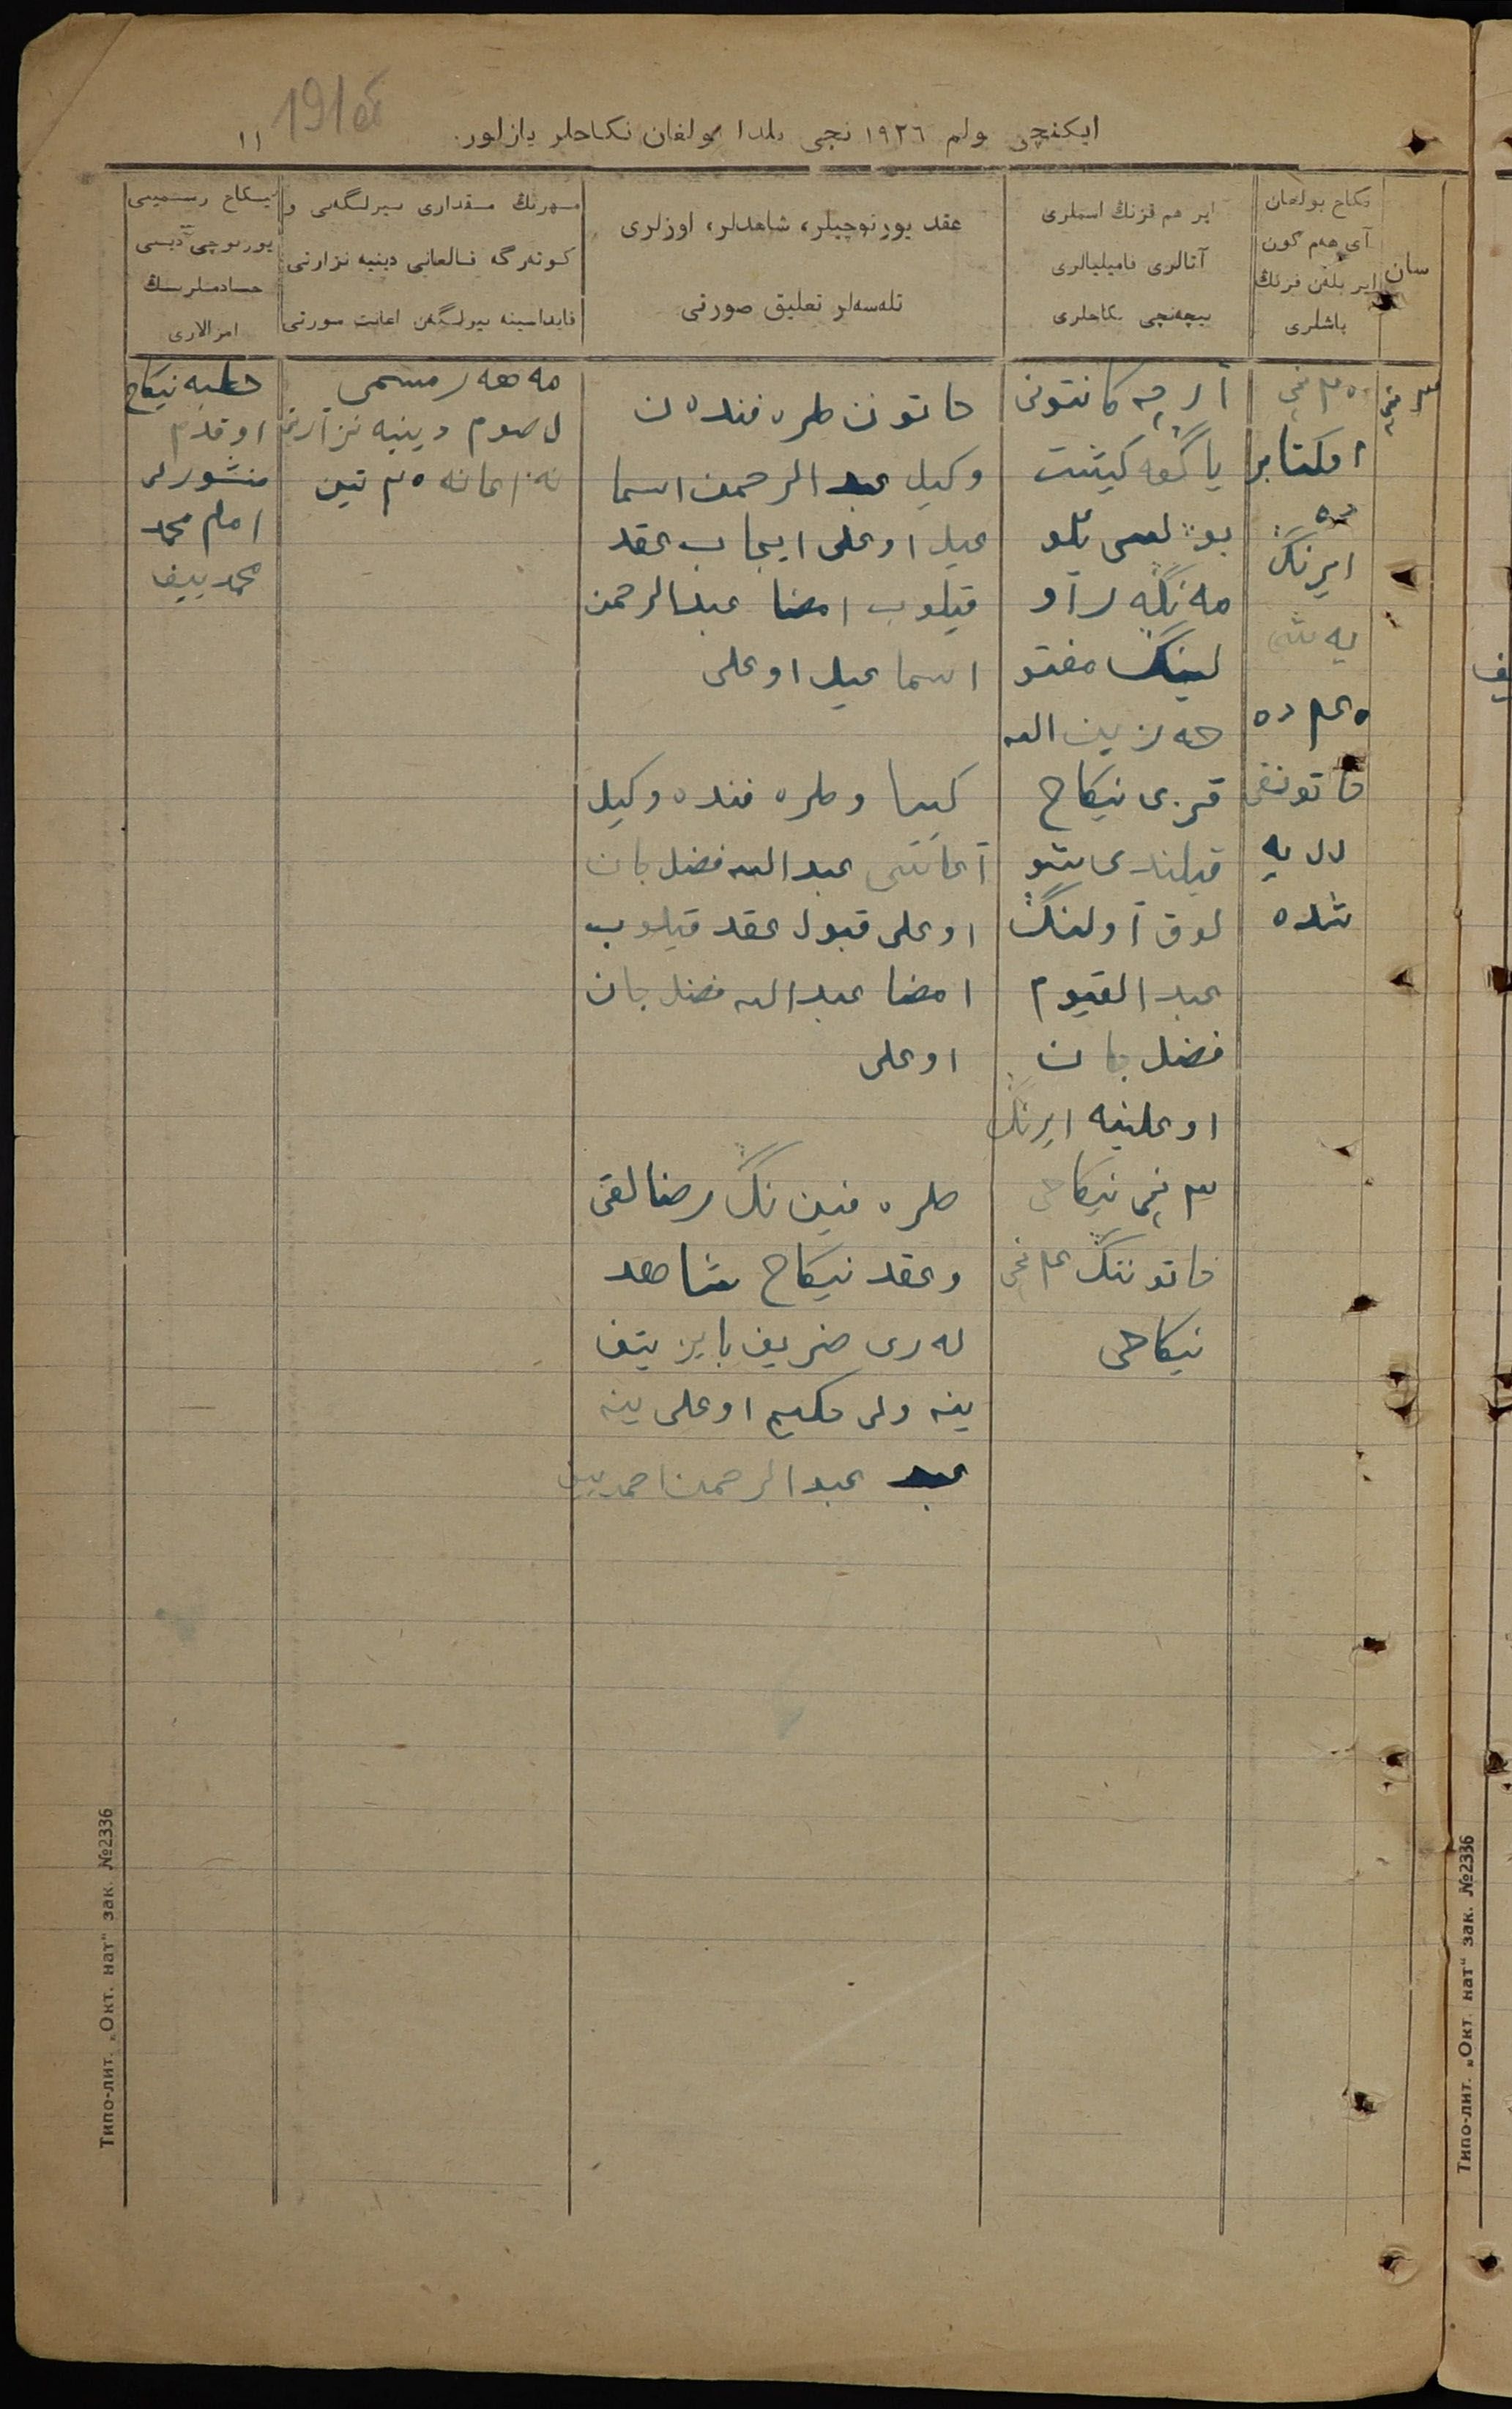 191об
ایكنچی ولم ١٩٢٦ نچی یلدا بولغان نكاحلر یازلور.
١١
سان
نكاح بولغان
آی هەم كون
ایر بلەن قزنڭ
یاشلری
ایر هم قزنڭ اسملری
آتالری فامیلیالری
نیچەنچی نكاحلری
عقد یورتوچیلر، شاهدلر، اوزلری
تلەسەلر تعلیق صورتی
مهرنڭ مقداری بیرلگەنی و
كوتەرگه قالغانی دینیه نزارتی
فایداسینه بیرلگەن اعانت صورتی
نیكاح رسمینی
یورتوچی دینی
خادملرینڭ
امزالاری
٣ نچی
اوكتابر
ده
ایرنڭ
یه شی
ده
خاتوننی
یه
شده
آرچه كانتونی
یاڭه كیشت
مه ڭه ر آو
لینڭ مفتو
حه زین الله
قزی نیكاح
قیلندی شو
لوق آولنڭ
عبد القیوم
فضل جان
اوغلینه ایرنڭ
٣ نچی نیكاحی
خاتوننڭ نچی
نیكاحی
خاتون طره فنده ن
وكیل عبد الرحمن اسما
عیل اوغلی ایجاب عقد
قیلوب امضا عبدالرحمن
اسماعیل اوغلی
كیبا و طره فنده وكیل
آغاسی عبد الله فضل جان
اوغلی قبول عقد قیلوب
امضا عبد الله فضل جان
اوغلی
طره فنین نڭ رضالقی
و عقد نیكاح شاهد
له ری ضریف بایزیتف
ینه ولی حكیم اوغلی ینه
عبد عبد الرحمن احمدییف
مه هه ر مسمی
صوم دینیه نزارتی
نه اعانه تین
خطبه نیكاح
اوقدم
منشورلی
امام محمد
محمدییف
Типо-лит. „Окт. нат" зак. №2336
Типо-лит. „Окт. нат" зак. №2336